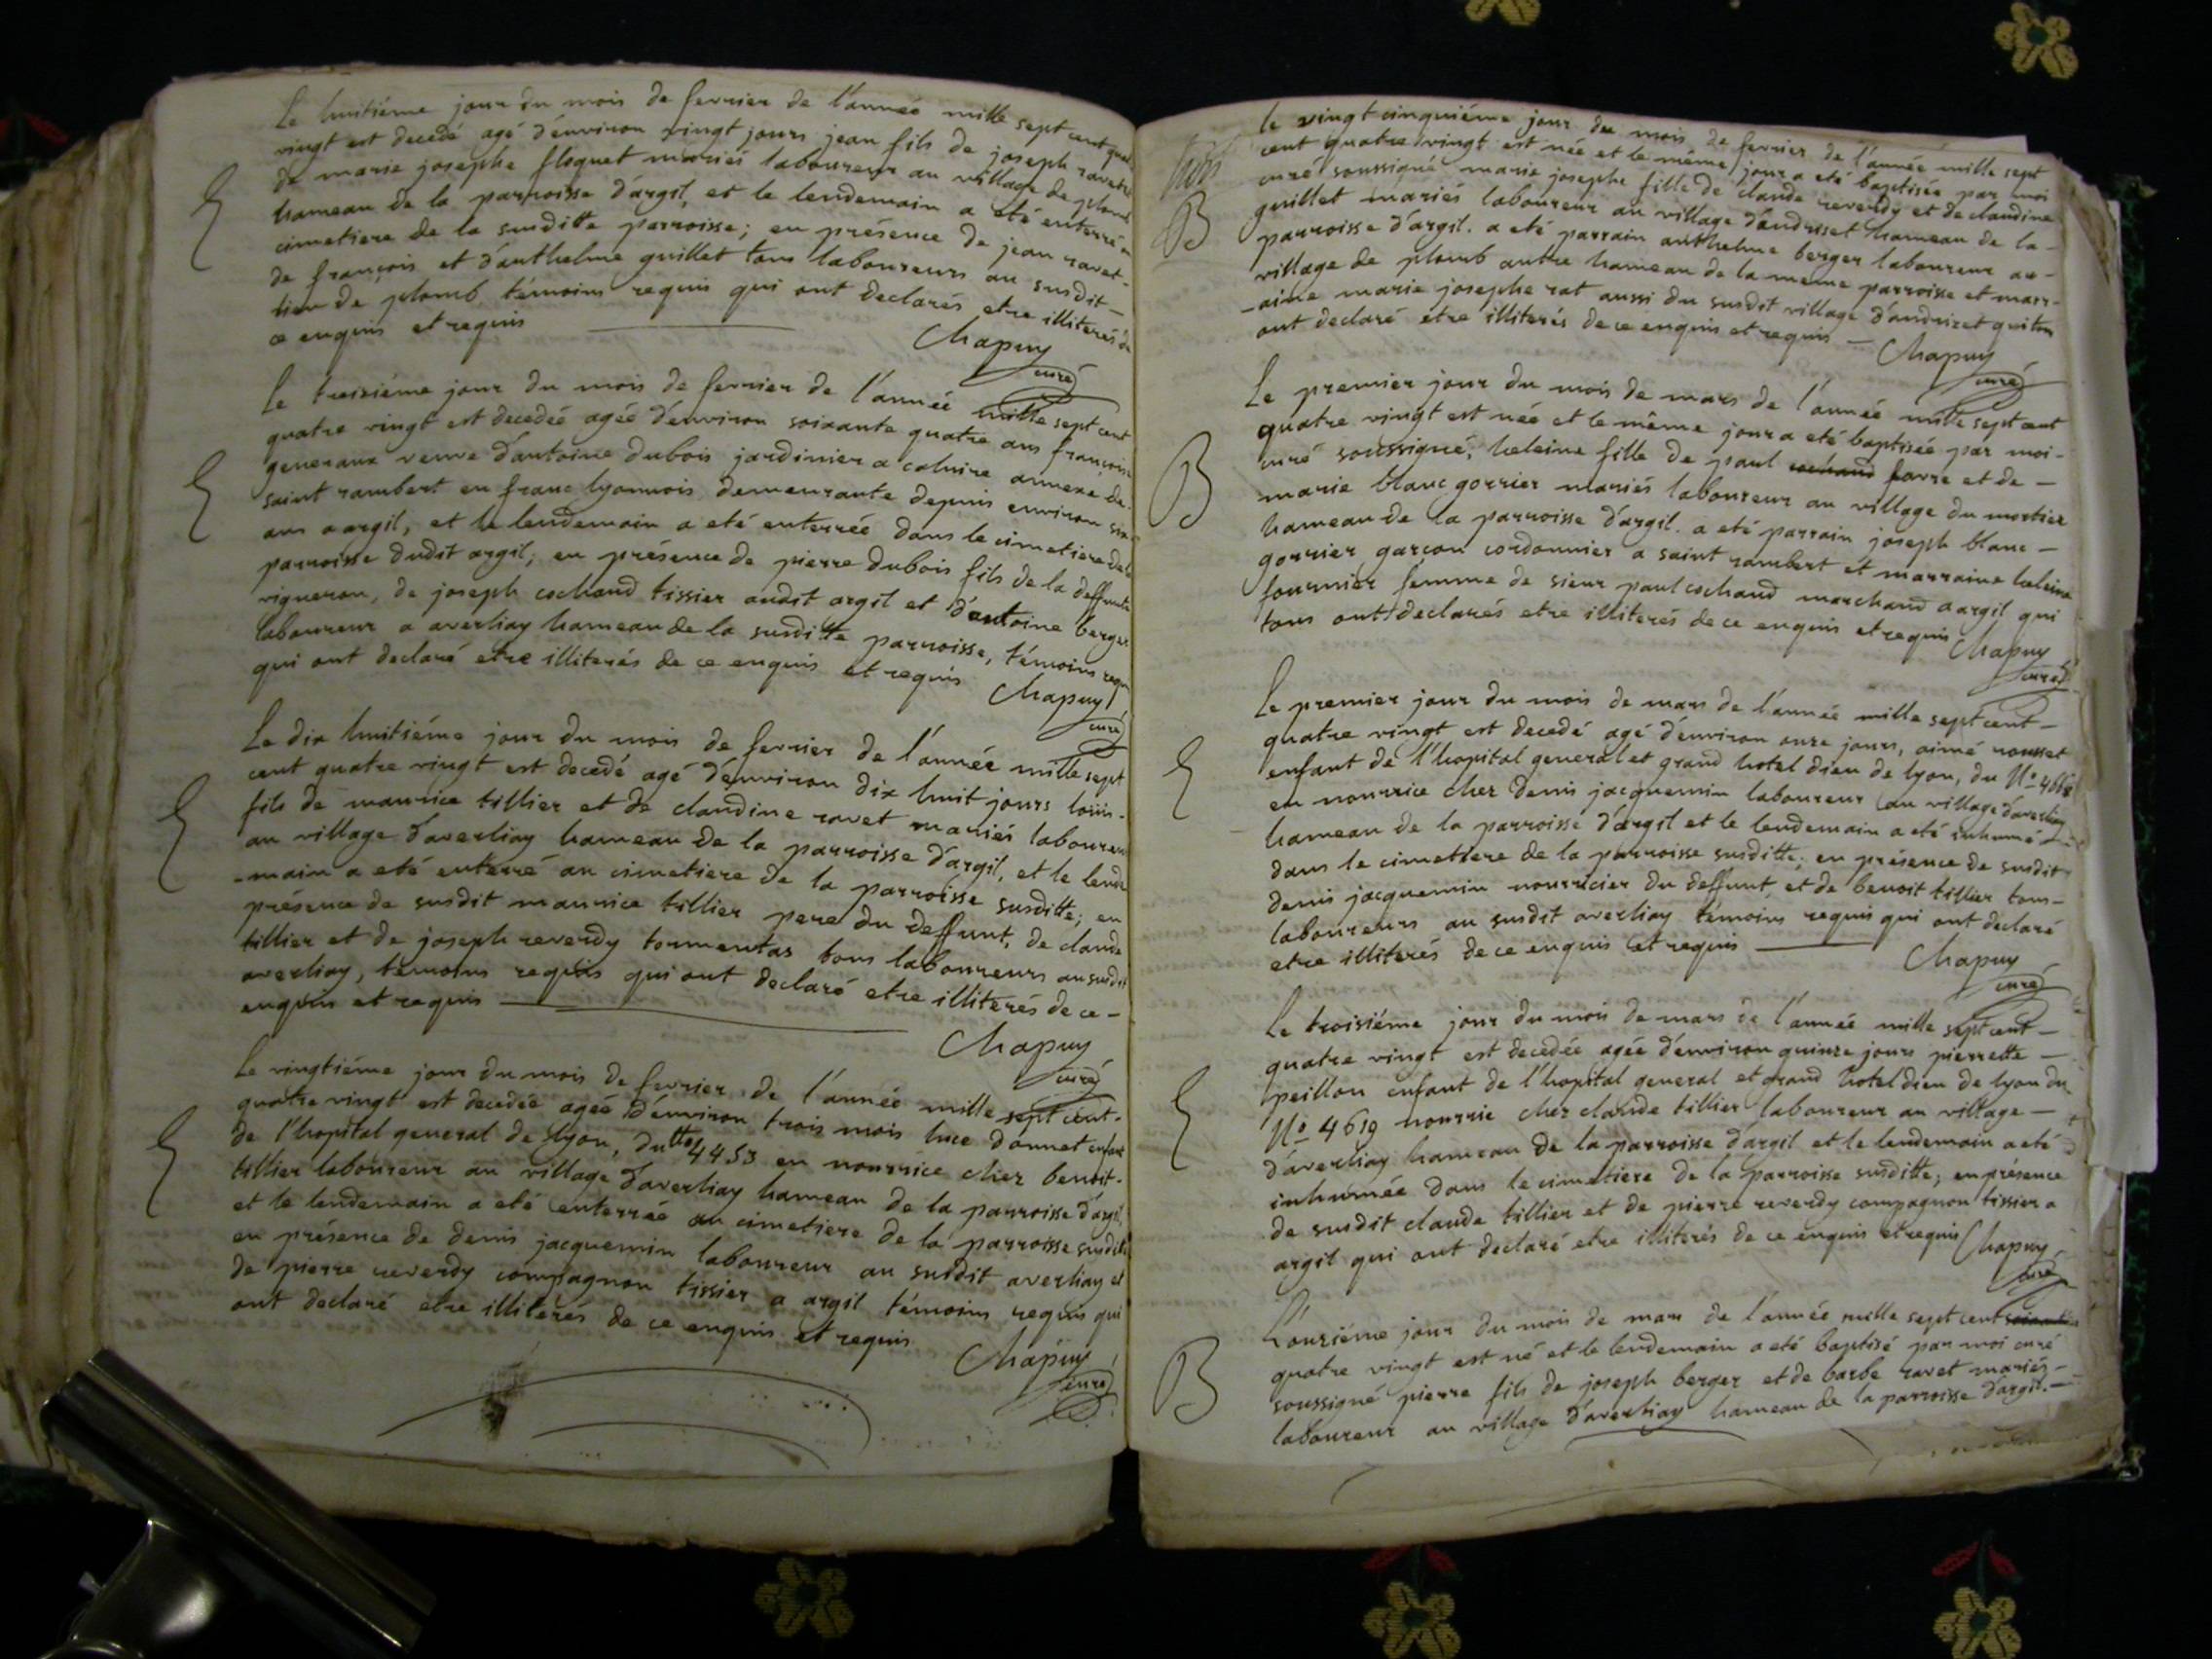 Le huitiéme jour du mois de fevrier de l'année mille sept cent quatre
vingt est decedé agé d'environ vingt jours jean fils de joseph ravet et
de marie josephe floquet mariés laboureur au village de plomb
hameau de la parroisse d'argil, et le lendemain a eté enterré au
cimetiere de la susditte parroisse; en présence de jean ravet-
de françois et d'anthelme guillet tous laboureurs au susdit-
lieu de plomb, témoins requis qui ont declarés etre illiterés de
ce enquis et requis
Chapuy
curé
Le treiziéme jour du mois de fevrier de l'année mille sept cent
quatre vingt est decedée agée d'environ soixante quatre ans françoise
generaux veuve d'antoine dubois jardinier a caluire annexe de
saint rambert en franc lyonnois demeurante depuis environ six
ans a argil, et le lendemain a eté enterrée dans le cimetiere de la
parroisse dudit argil; en présence de pierre dubois fils de la deffunte
vigneron, de joseph cochand tissier audit argil et d'antoine berger
laboureur a averliay hameau de la susditte parroisse, témoins requis
qui ont declaré etre illiterés de ce enquis et requis
Chapuy
curé
Le dix huitiéme jour du mois de fevrier de l'année mille sept
cent quatre vingt est decedé agé d'environ dix huit jours louis-
fils de maurice tillier et de claudine ravet mariés laboureur
au village d'averliay hameau de la parroisse d'argil, et le lende
-main a eté enterré au cimetiere de la parroisse susditte; en
présence de susdit maurice tillier pere du deffunt, de claude
tillier et de joseph reverdy tormentas tous laboureurs au susdit
averliay, témoins requis qui ont declaré etre illiterés de ce-
enquis et requis
Chapuy
curé
Le vingtiéme jour du mois de fevrier de l'année mille sept cent-
quatre vingt est decedée agée d'environ trois mois luce donnet enfant
de l'hopital general de lyon, du 4453 en nourrice chez benoit-
tillier laboureur au village d'averliay hameau de la parroisse d'argil
et le lendemain a eté enterrée au cimetiere de la parroisse susditte
en présence de denis jacquemin laboureur au susdit averliay et
de pierre reverdy compagnon tissier a argil témoins requis qui
ont declaré etre illiterés de ce enquis et requis
Chapuy
curé
le vingt cinquiéme jour du mois de fevrier de l'année mille sept
cent quatre vingt est née et le même jour a eté baptisée par moi
B
curé soussigné marie josephe fille de claude reverdy et de claudine
guillet mariés laboureur au village d'andrisset hameau de la-
parroisse d'argil. a eté parrain anthelme berger laboureur au-
village de plomb autre hameau de la même parroisse et marr-
-aine marie josephe rat aussi du susdit village d'andrizet qui tous
ont declaré etre illiterés de ce enquis et requis - Chapuy
curé
Le premier jour du mois de mars de l'année mille sept cent
quatre vingt est née et le même jour a eté baptisée par moi-
B
curé soussigné, heleine fille de paul cochand favre et de -
marie blanc gorrier mariés laboureur au village du mortier
hameau de la parroisse d'argil. a eté parrain joseph blanc -
gorrier garcon cordonnier a saint rambert et marraine heleine
fournier femme de sieur paul cochand marchand a argil qui
tous ont declarés etre illiterés de ce enquis et requis Chapuy
curé
Le premier jour du mois de mars de l'année mille sept cent-
quatre vingt est decedé agé d'environ onze jours, aimé rousset
enfant de l'hopital general et grand hotel dieu de lyon, du N°
en nourrice chez denis jacquemin laboureur au village d'averliay
hameau de la parroisse d'argil et le lendemain a eté inhumé -
dans le cimetiere de la parroisse susditte; en présence de susdit
denis jacquemin nourricier du deffunt et de benoit tillier tous-
laboureurs au susdit averliay témoins requis qui ont declaré
etre illiterés de ce enquis et requis
Chapuy
curé
Le troisiéme jour du mois de mars de l'année mille sept cent -
quatre vingt est decedée agée d'environ quinze jours pierrette -
peillon enfant de l'hopital general et grand hotel dieu de lyon du
N° 4619 nourrie chez claude tillier laboureur au village -
d'averliay hameau de la parroisse d'argil et le lendemain a eté
inhumée dans le cimetiere de la parroisse susditte; en présence
de susdit claude tillier et de pierre reverdy compagnon tissier a
argil qui ont declaré etre illiterés de ce enquis et requis Chapuy
curé
L'onziéme jour du mois de mars de l'année mille sept cent
quatre vingt est né et le lendemain a eté baptisé par moi curé
B
soussigné pierre fils de joseph berger et de barbe ravet mariés-
laboureur au village d'averliay hameau de la parroisse d'argil.-